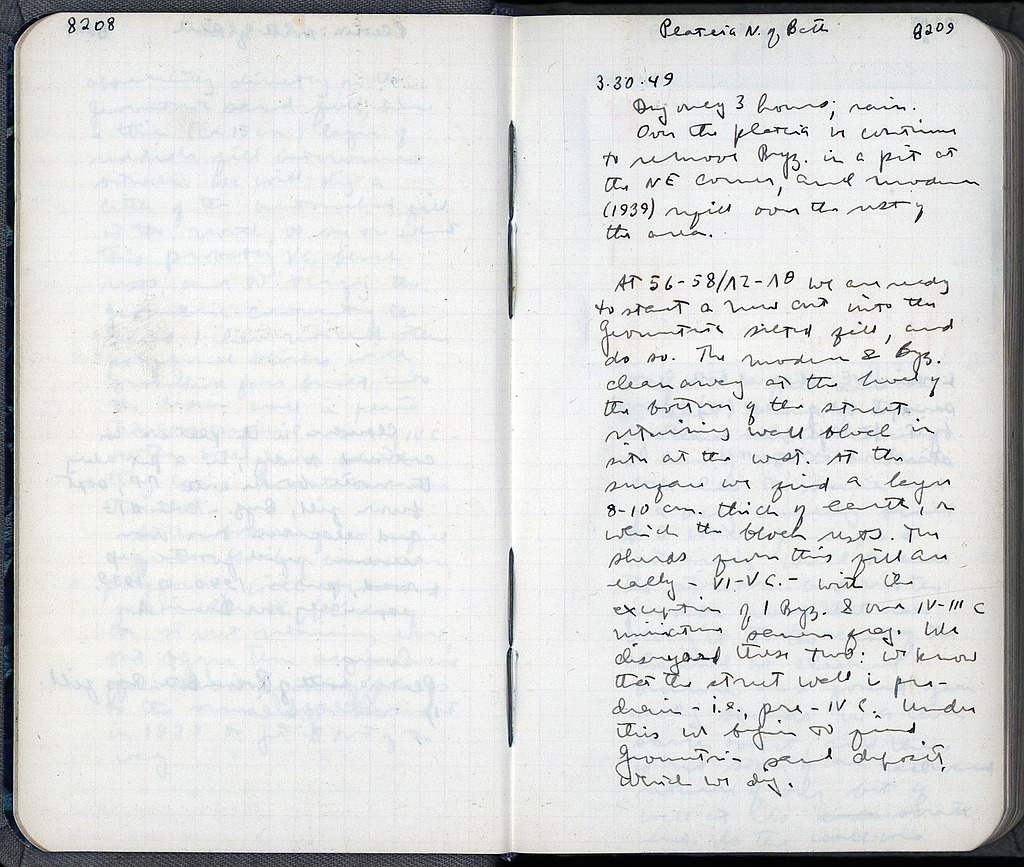 8208
Plateia N. of Bath 8209
3.30.49
Dig only 3 hours; rain.
Over the plateia we continue
to remove Byz. in a pit at
the NE corner, and modern
(1939) refill over the rest of
the area.
At 56-58/12-18 we are ready
to start a new cut into the
Geometric silted fill, and
do so. The modern & Byz.
clean away at the level of
the bottom of the street
retaining wall block in
situ at the west. At the
surface we find a layer
8-10 cm. thick of earth, on
which the block rests. The
sherds from this fill are
early - VI-V C. - with the
exception of 1 Byz. & one IV-III C
miniature frag. We
disregard these two: we know
that the street wall is pre-
drain - i.e., pre-IV C. Under
this we begin to find
Geometric sand deposit,
which we dig.